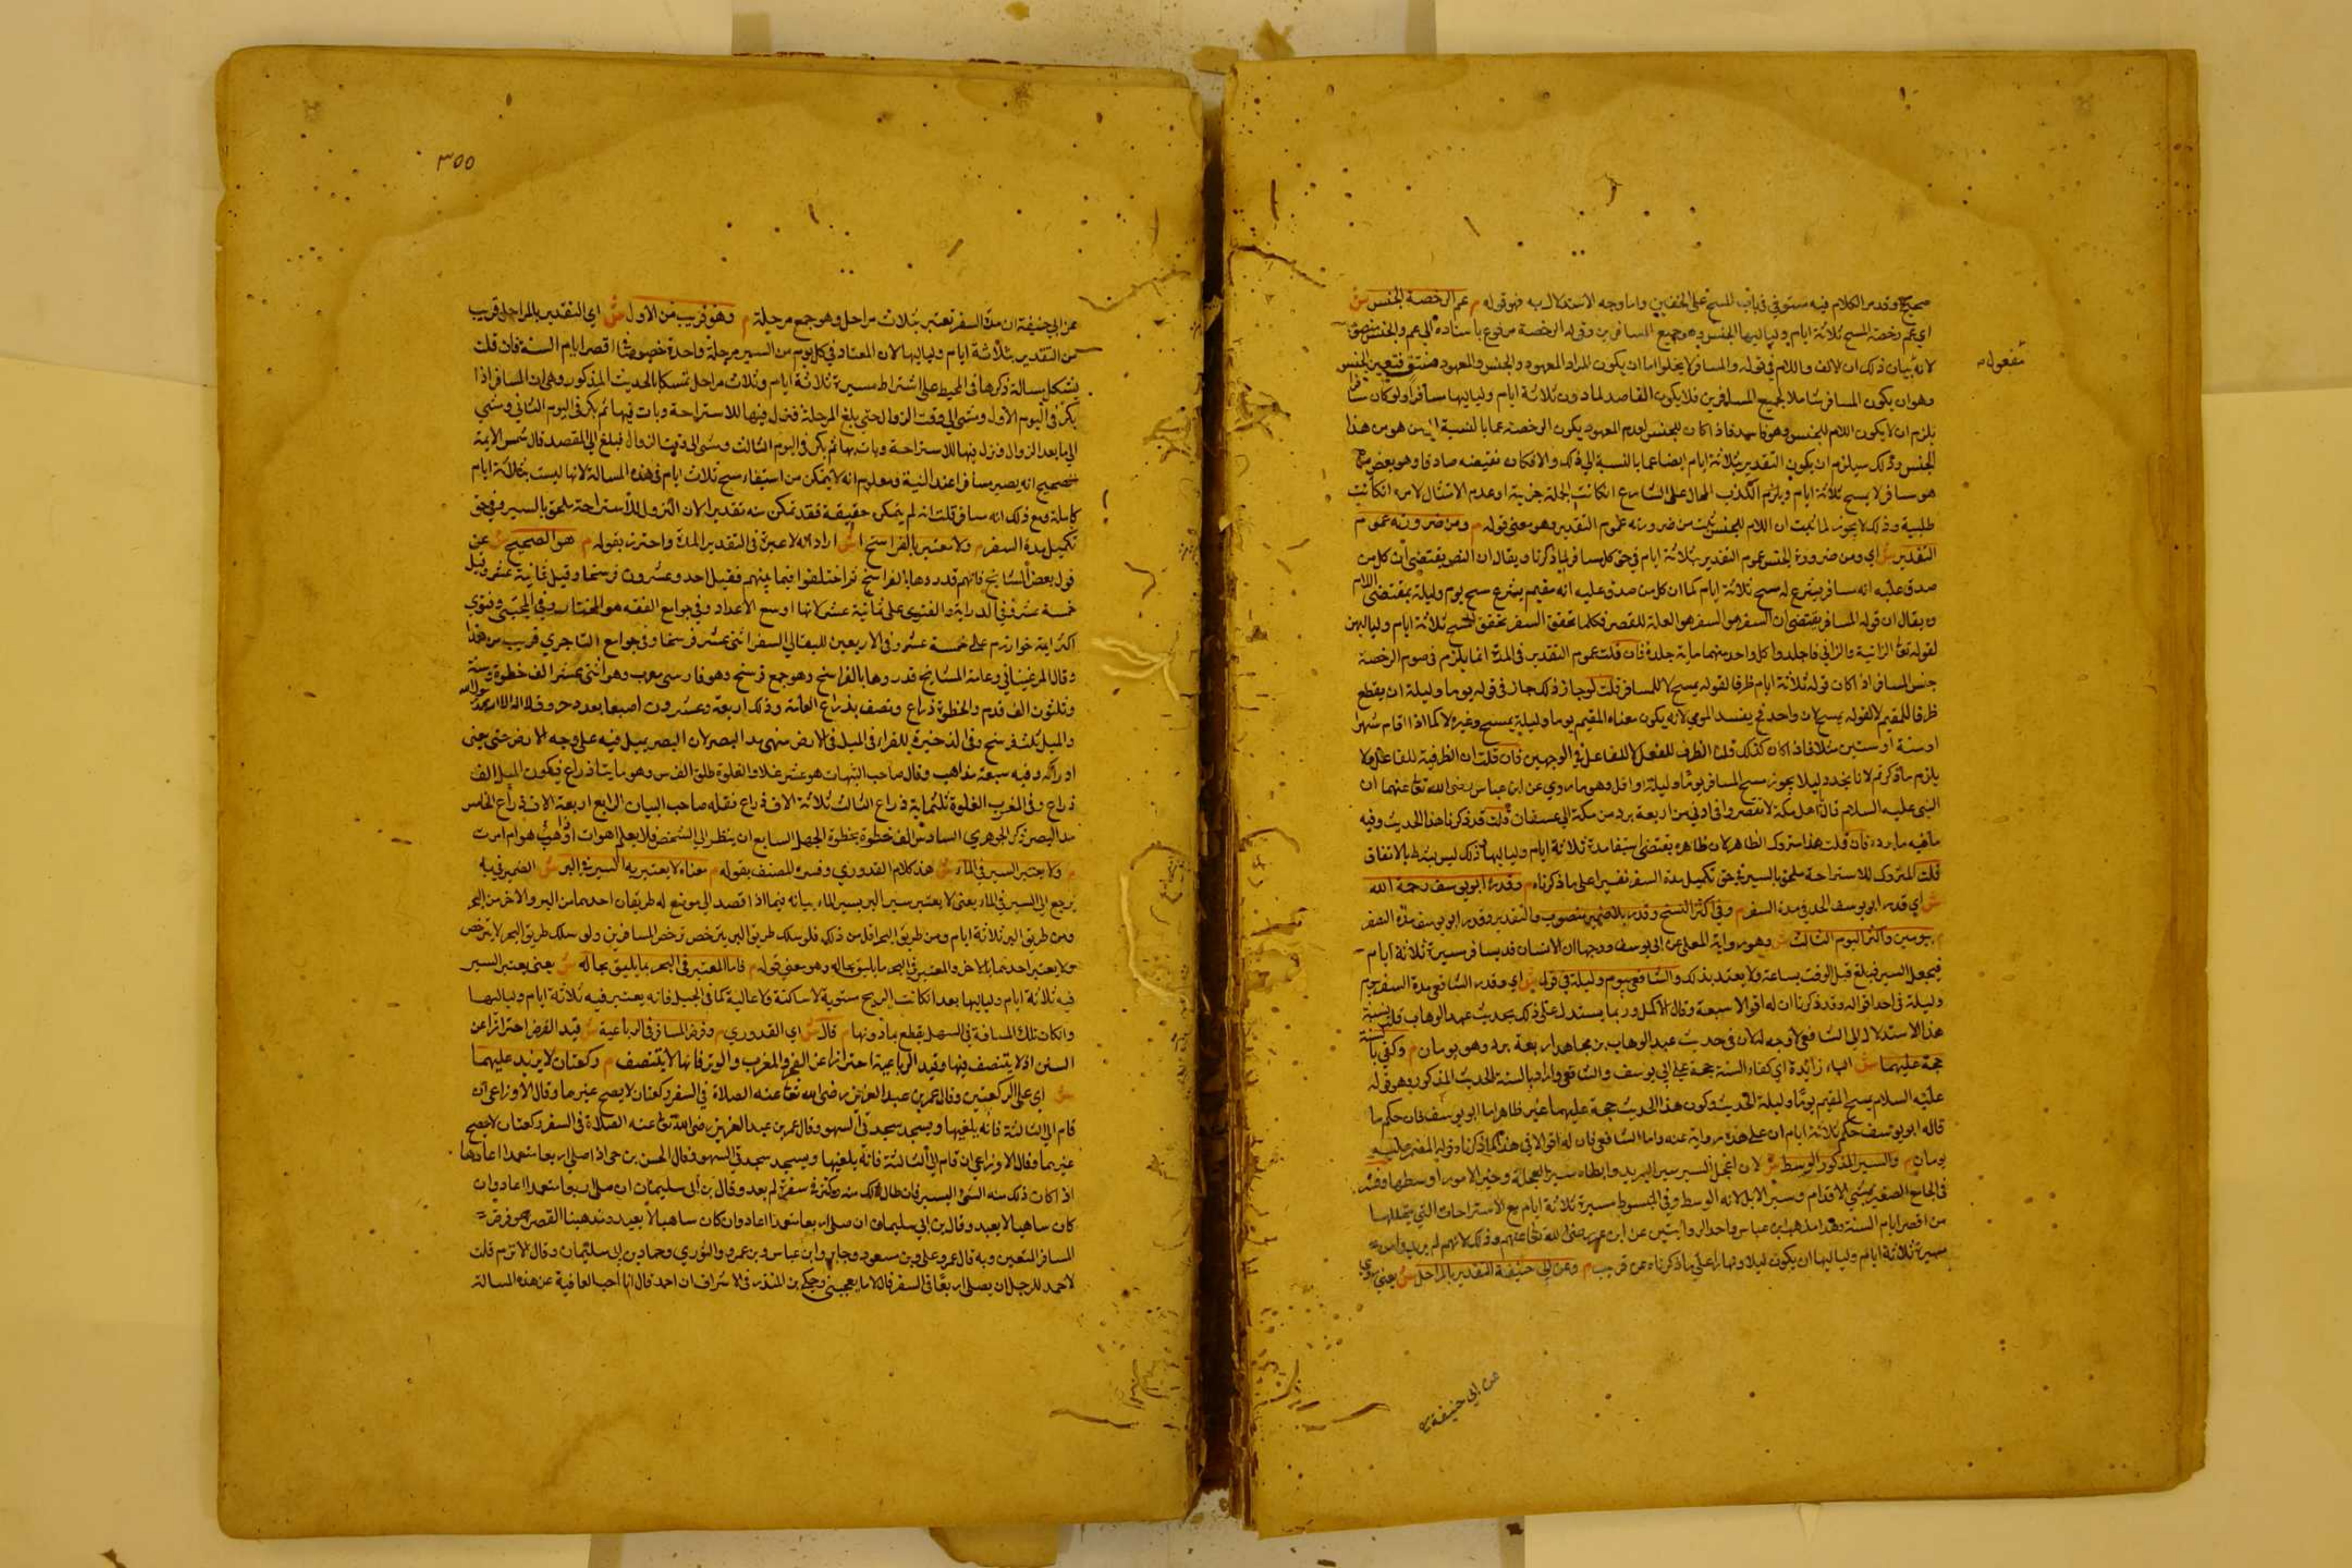 صحيح وقد مر الكلام فيه مستوفي في باب المسح على الخفين واما وجه الاستدلال به فهو قوله م عم الرخصة الجنس ش
اي عم رخصة المسح ثلاثة ايام ولياليها الجنس وهو جميع المسافرين وقوله الرخصة مرفوع باسناده الى عم والجنس منصوب
مفعوله
لانه بيان ذلك ان الالف واللام في قوله والمسافر لا يخلو اما ان يكون للمراد المعهود والجنس والمعهود منتف فتعين الجنس
وهو ان يكون المسافر شاملا لجميع المسافرين فلا يكون القاصد لما دون ثلاثة ايام ولياليها مسافرا ولو كان مسافرا
يلزم ان لا يكون اللام للجنس وهو فاسد فاذا كان للجنس لعدم المعهود يكون الرخصة عما بالنسبة الى من هو من هذا
الجنس وذلك يستلزم ان يكون التقدير بثلاثة ايام ايضا عما بالنسبة الى ذلك والا لكان نقيضه صادقا وهو بعض
هو مسافر لا يمسح ثلاثة ايام ويلزم الكذب المحال على الشارع ان كانت الجملة خبرية او عدم الامتثال لامره ان كانت
طلبية وذلك لا يجوز لما ثبت ان اللام للجنس ثبت من ضرورته عموم التقدير وهو معنى قوله م ومن ضرورته عموم
التقدير ش اي ومن ضرورة الجنس عموم التقدير بثلاثة ايام في حق كل مسافر لما ذكرنا ويقال ان النص يقتضي ان كل من
صدق عليه انه مسافر يشرع له مسح ثلاثة ايام كما ان كل من صدق عليه انه مقيم يشرع مسح يوم وليلة بمقتضى اللام
ويقال ان قوله المسافر يقتضي ان السفر هو السفر هو العلة للقصر فكلما تحقق السفر تحقق المسح ثلاثة ايام ولياليهن
لقوله تعالى الزانية والزاني فاجلدوا كل واحد منهما ماية جلدة فان قلت عموم التقدير في المدة انما يلزم في صوم الرخصة
جنس المسافر اذا كان قوله ثلاثة ايام ظرفا لقوله يمسح لا للمسافر قلت لو جاز ذلك جاز في قوله يوما وليلة ان يقطع
ظرفا للمقيم لا لقوله يمسح لان واحد في يفسد المومي لانه يكون معناه المقيم يوما وليلة يمسح وغيره لا كما اذا اقام شهرا
او سنة او سنين مثلا فاذا كان كذلك قلنا الظرف للفعل لا للفاعل في الوجهين فان قلت ان الظرفية للفاعل ولا
يلزم ما ذكرتم لانا نجد دليلا يجوز مسح المسافر يوما وليلة او اقل وهو ما روي عن ابن عباس رضي الله تعالى عنهما ان
النبي عليه السلام قال يا اهل مكة لا تقصروا في ادنى من اربعة برد من مكة الى عسفان قلت قد ذكرنا هذا الحديث وفيه
ما فيه فان قلت هذا متروك الظاهر لان ظاهره يقتضي استيفا مدة ثلاثة ايام ولياليها وذلك ليس بشرط بالاتفاق
قلت المتروك للاستراحة ملحق بالسير في حق تكميل مدة السفر تفسيرا على ما ذكرناه م وقدر ابو يوسف رحمه الله
ش اي قدر ابو يوسف الحد في مدة السفر م وفي اكثر النسخ وقدره بالضمير منصوب والتقدير وقدر ابو يوسف مدة السفر
م بيومين واكثر اليوم الثالث ش وهو رواية المعلى عن ابي يوسف ووجهها ان الانسان قد يسافر مسيرة ثلاثة ايام
فيعجل السير فيبلغ قبل الوقت بساعة ولا يعتد بذلك والشافعي بيوم وليلة في قوله ش اي وقدر الشافعي مدة السفر بيوم
وليلة في احد اقواله وقد ذكرنا ان له اقوالا سبعة وقال الاكمل وربما يستدل على ذلك بحديث عبد الوهاب قلت نسبة
هذا الاستدلال الى الشافعي لا وجه له لان في حديث عبد الوهاب بن مجاهد اربعة برد وهو يومان م وكفى بالسنة
حجة عليهما ش الباء زائدة اي كفاه السنة حجة على ابي يوسف والشافعي واراد بالسنة الحديث المذكور وهو قوله
عليه السلام يمسح المقيم يوما وليلة الحديث وكون هذا الحديث حجة عليهما غير ظاهر اما ابو يوسف فان حكم ما
قاله ابو يوسف حكم ثلاثة ايام ان على هذه رواية عنه واما الشافعي فان له اقوالا في هذا كما ذكرنا
يومان م والسير المذكور الوسط ش لان اعجل السير سير البريد وابطاه سير العجلة وخير الامور اوسطها وفسر
في الجامع الصغير بمشي الاقدام وسير الابل لانه الوسط وفي المبسوط مسيرة ثلاثة ايام مع الاستراحات التي يتخللها
من اقصر ايام السنة وهذا مذهب ابن عباس واحد الروايتين عن ابن عمر رضي الله تعالى عنهم وذلك لانه لم يرد
مسيرة ثلاثة ايام ولياليها ان يكون ليلا ونهارا على ما ذكرناه عن قريب م وعن ابي حنيفة التقدير بالمراحل ش يعني روي
عن ابي حنيفة
٣٥٥
عن ابي حنيفة ان مدة السفر تعتبر بثلاث مراحل وهو جمع مرحلة م وهو قريب من الاول ش اي التقدير بالمراحل قريب
من التقدير بثلاثة ايام ولياليها لان المعتاد في كل يوم من السير مرحلة واحدة خصوصا اقصر ايام السنة فان قلت
يشكل بمسالة ذكرها في المحيط على اشتراط مسيرة ثلاثة ايام وثلاث مراحل تمسكا بالحديث المذكور وهي ان المسافر اذا
بكر في اليوم الاول ومشى الى وقت الزوال حتى بلغ المرحلة فنزل فيها للاستراحة وبات فيها ثم بكر في اليوم الثاني ومشى
الى ما بعد الزوال ونزل فيها للاستراحة وبات بها ثم بكر في اليوم الثالث ومشى الى وقت الزوال فبلغ الى المقصد قال شمس الايمة
الصحيح انه يصير مسافرا عند النية ومعلوم انه لا يتمكن من استيفاء مسح ثلاث ايام في هذه المسالة لانها ليست بثلاثة ايام
كاملة ومع ذلك انه مسافر قلت انه لم يتمكن حقيقة فقد تمكن منه تقديرا لان النزول للاستراحة ملحق بالسير في حق
تكميل مدة السفر م ولا معتبر بالفراسخ ش اراد انه لا عبرة في التقدير المدة واحترز بقوله م هو الصحيح ش عن
قول بعض المشايخ فانهم قدروها بالفراسخ ثم اختلفوا فيما بينهم فقيل احد وعشرون فرسخا وقيل ثمانية عشر وقيل
خمسة عشر وفي الدراية والفتوى على ثمانية عشر لانها اوسع الاعداد وفي جوامع الفقه هو المختار وفي المجتبى وفتوى
اكثر ايمة خوارزم على خمسة عشر وفي الاربعين للبقالي السفر اثنى عشر فرسخا وفي جوامع الناجري قريب من هذا
وقال المرغيناني وعامة المشايخ قدروها بالفراسخ وهو جمع فرسخ وهو فارسي معرب وهو اثنى عشر الف خطوة وستة
وثلثون الف قدم والخطوة ذراع ونصف بذراع العامة وذلك اربعة وعشرون اصبعا بعدد حروف لا اله الا الله محمد رسول الله
والميل ثلث فرسخ وفي الذخيرة للقرافي الميل في الارض منتهى مد البصر لان البصر يميل فيه على وجه الارض حتى يفنى
ادراكه وفيه سبعة مذاهب وقال صاحب التنبيهات هو عشر غلاء والغلوة طلق الفرس وهو مايتا ذراع فيكون الميل الف
ذراع وفي المغرب الغلوة ثلثماية ذراع الثالث ثلاثة الاف ذراع نقله صاحب البيان الرابع اربعة الاف ذراع الخامس
مد البصر ذكره الجوهري السادس الف خطوة بخطوة الجمل السابع ان ينظر الى الشخص فلا يعلم اهو ات او ذاهب هو ام امرت
م ولا يعتبر السير في الماء ش هذا كلام القدوري وفسره المصنف بقوله م معناه لا يعتبر به السير في البر ش الضمير في به
يرجع الى السير في الماء يعني لا يعتبر سير البر بسير الماء بيانه فيما اذا قصد الى موضع له طريقان احدهما من البر والاخر من البحر
ومن طريق البر ثلاثة ايام ومن طريق البحر اقل من ذلك فلو سلك طريق البر يترخص ترخص المسافرين ولو سلك طريق البحر لا يترخص
ولا يعتبر احدهما بالاخر والمعتبر في البحر ما يليق بحاله وهو معنى قوله م فاما المعتبر في البحر بما يليق بحاله ش يعني يعتبر السير
فيه ثلاثة ايام ولياليها بعد ان كانت الريح مستوية لا ساكنة ولا عالية كما في الجبل فانه يعتبر فيه ثلاثة ايام ولياليها
وان كان تلك المسافة في السهل يقطع بما دونها م قال ش اي القدوري م وفرض المسافر في الرباعية ش قيد الفرض احترازا عن
السنن اذ لا يتنصف فيها وقيد الرباعية احترازا عن الفجر والمغرب والوتر فانها لا يتنصف م ركعتان لا يزيد عليهما
ش اي على الركعتين وقال عمر بن عبد العزيز رضي الله تعالى عنه الصلاة في السفر ركعتان لا يصح غيرهما وقال الاوزاعي ان
قام الى الثالثة فانه يلغيها ويسجد سجدتي السهو وقال عمر بن عبد العزيز رضي الله تعالى عنه الصلاة في السفر ركعتان لا يصح
غيرهما وقال الاوزاعي ان قام الى الثالثة فانه يلغيها ويسجد سجدتي السهو وقال الحسن بن حي اذا صلى اربعا متعمدا اعادها
اذا كان ذلك منه الشئ اليسير فان طال ذلك منه وكثر في سفره لم يعد وقال بن ابي سليمان ان صلى اربعا متعمدا اعاد وان
كان ساهيا لا يعيد وقال بن ابي سليمان ان صلى اربعا متعمدا اعاد وان كان ساهيا لا يعيد ومذهبنا القصر هو فرض
المسافر المتعين وبه قال عمر وعلي وبن مسعود وجابر وابن عباس وبن عمر والثوري وحماد بن ابي سليمان وقال الاثرم قلت
لاحمد للرجل ان يصلي اربعا في السفر قال لا ما يعجبني وحكى بن المنذر في الاشراف ان احمد قال انا احب العافية عن هذه المسالة